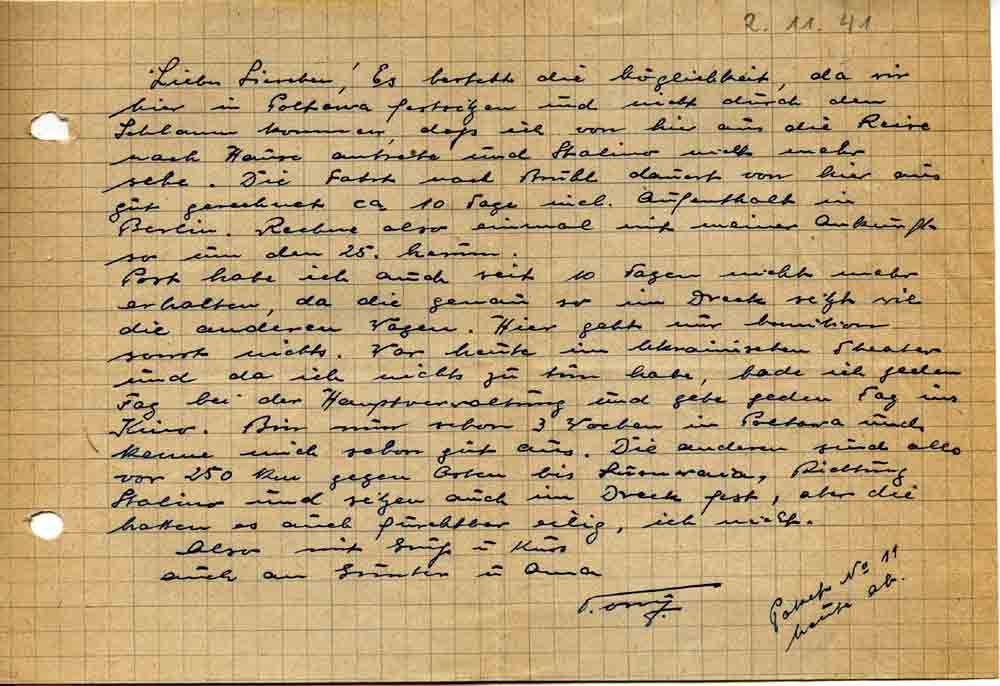 2. 11. 41
Liebes Lieschen! Es besteht die Möglichkeit, da wir
hier in Poltawa festsitzen und nicht durch den
Schlamm kommen, daß ich von hier aus die Reise
nach Hause antrete und Stalino nicht mehr
sehe. Die Fahrt nach Brühl dauert von hier aus
gut gerechnet ca 10 Tage incl. Aufenthalt in
Berlin. Rechne also einmal mit meiner Ankunft
so um den 25. herum.
Post habe ich auch seit 10 Tagen nicht mehr
erhalten, da die genau so im Dreck sitzt wie
die anderen Wagen. Hier geht nur Munition
sonst nichts. War heute im Ukrainischen Theater
und da ich nichts zu tun habe, bade ich jeden
Tag bei der Hauptverwaltung und gehe jeden Tag ins
Kino. Bin nun schon 3 Wochen in Poltawa und
kenne mich schon gut aus. Die anderen sind alle
vor 250 km gegen Osten bis Richtung
Stalino und sitzen auch im Dreck fest, aber die
hatten es auch furchtbar eilig, ich nicht.
Also mit Gruß u Kuss
auch an Günter u Oma
Paket No 11
heute ab.